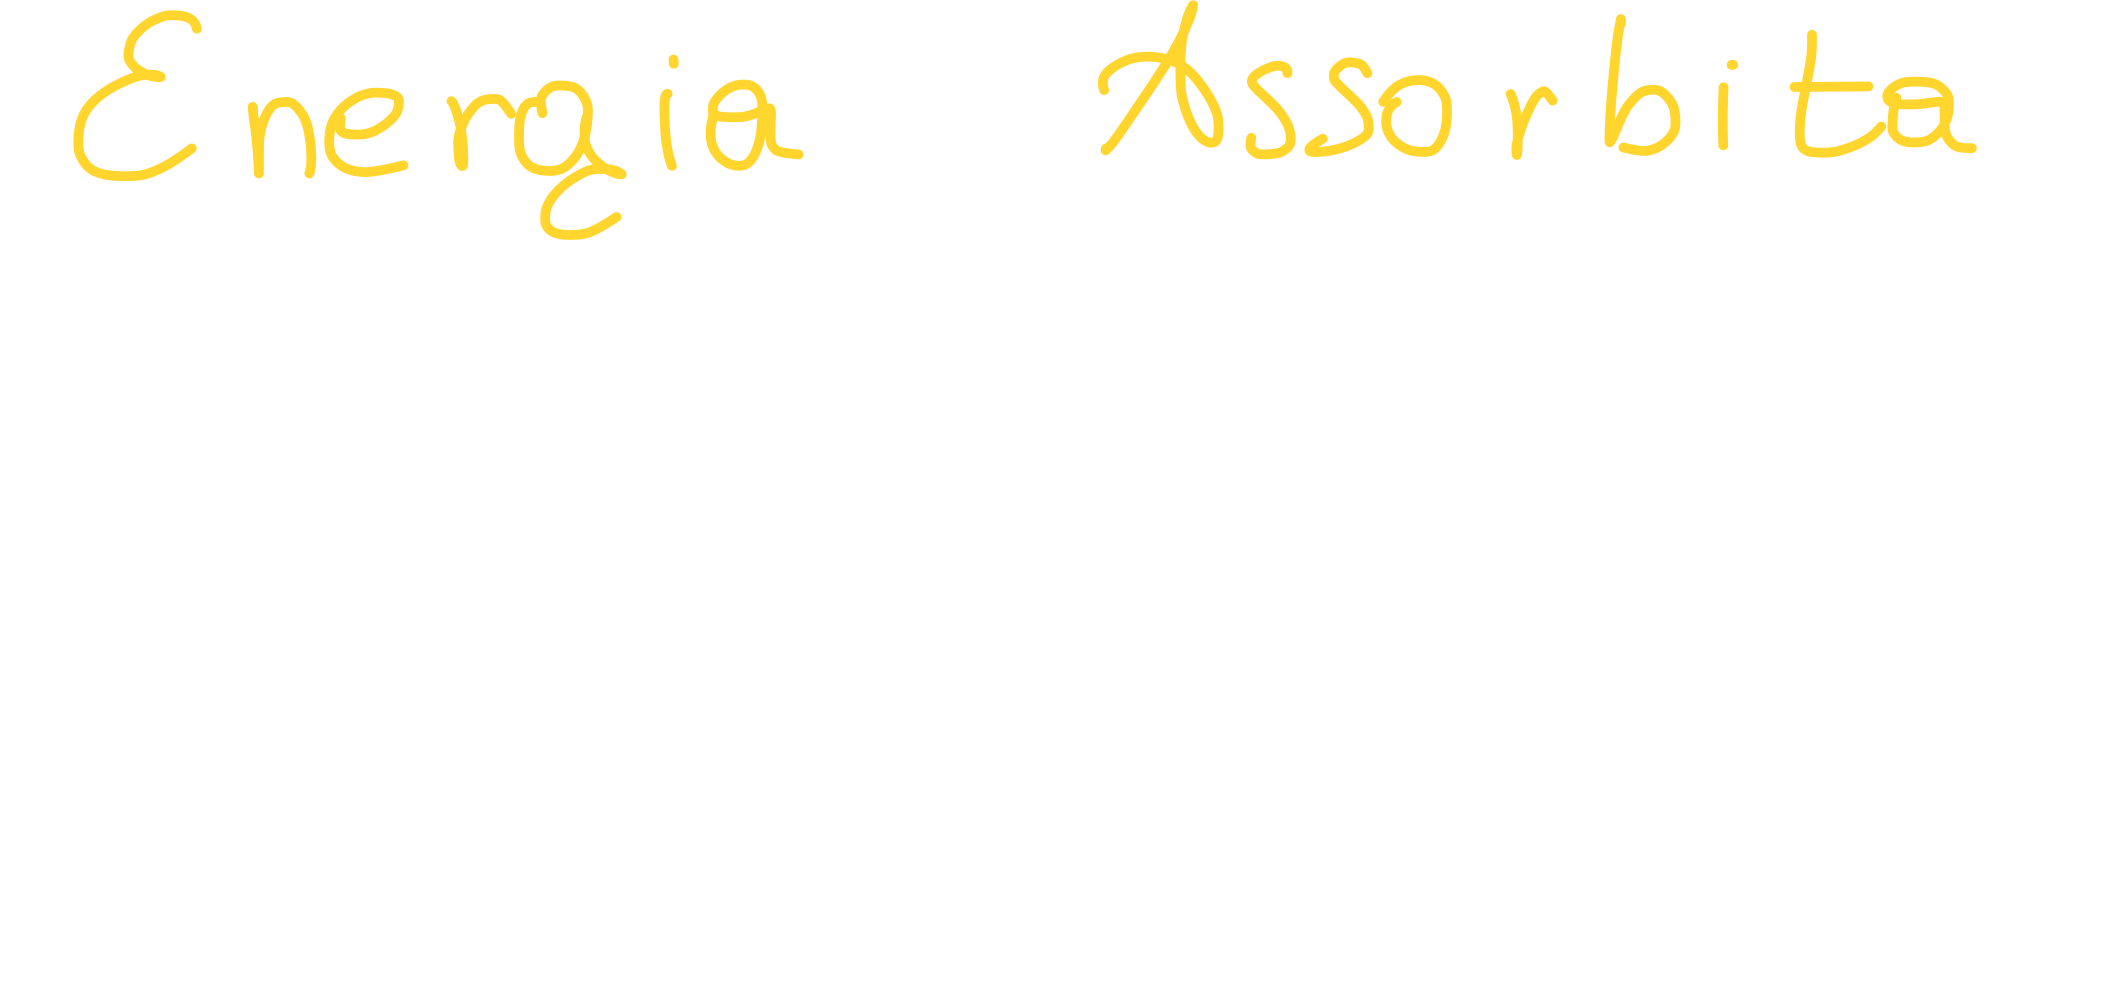 Energia Assorbita